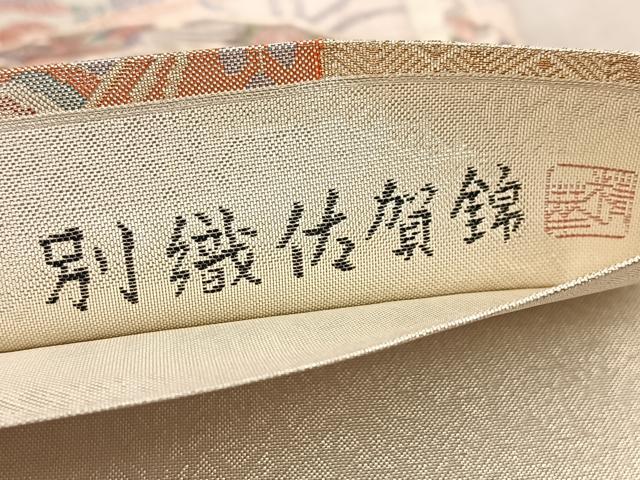 別織佐賀錦